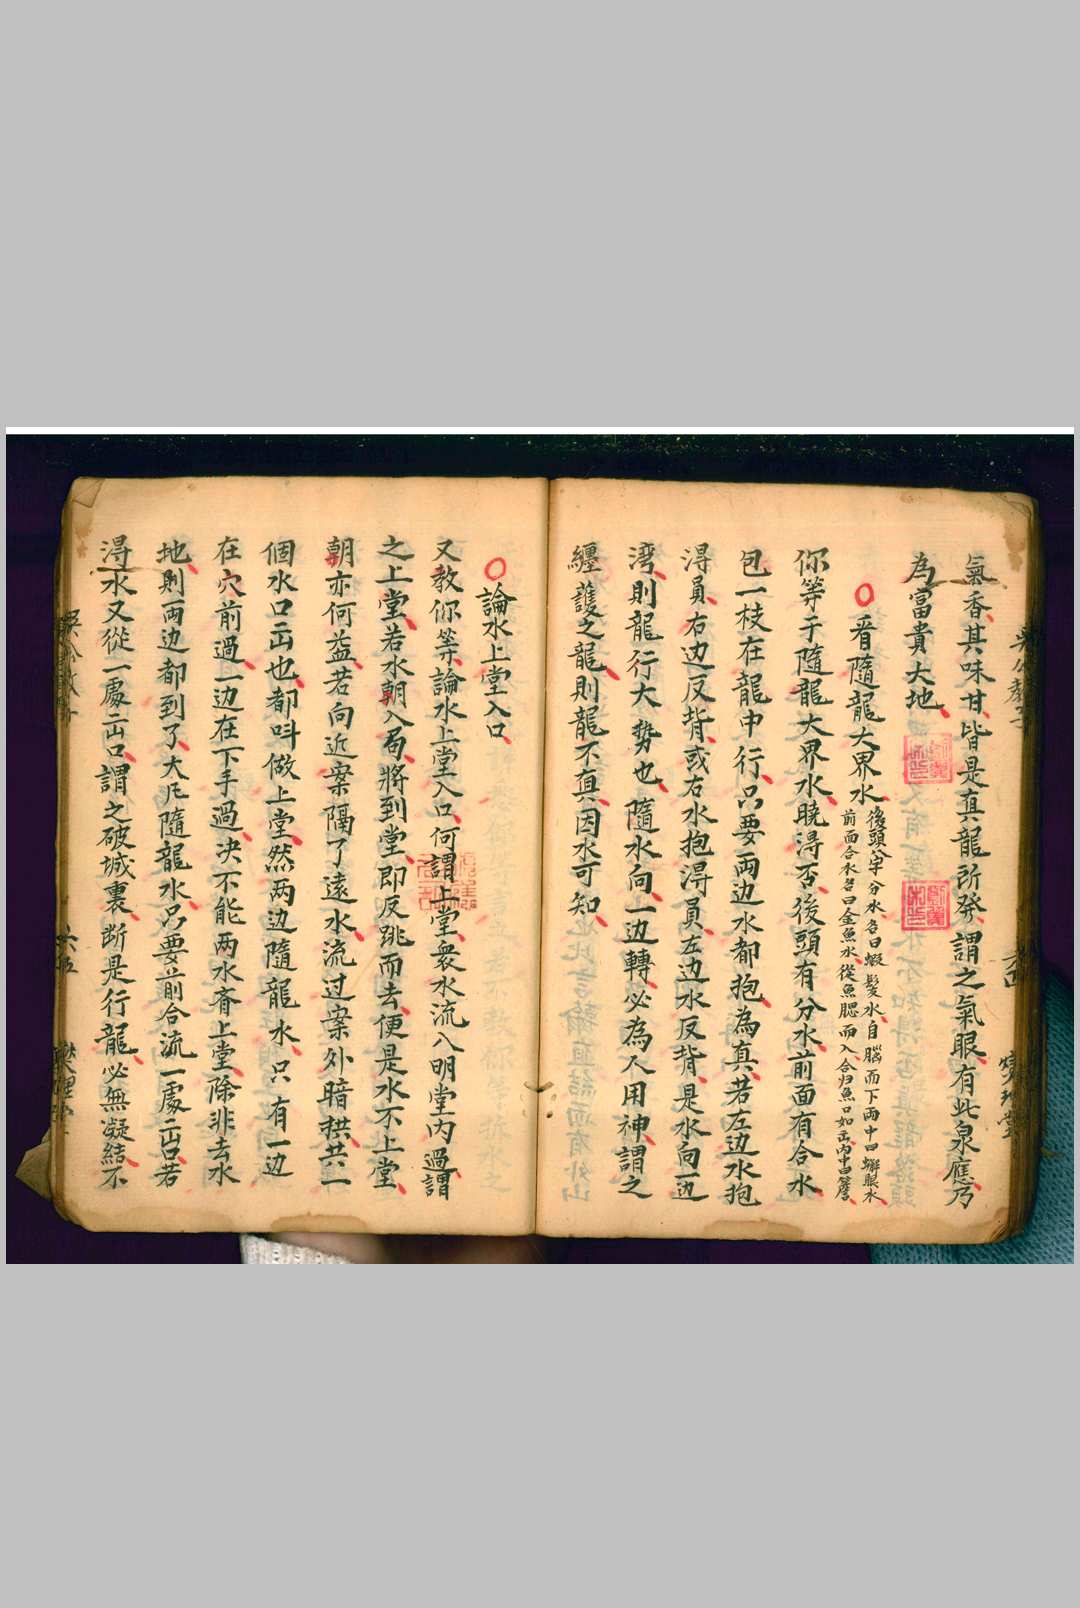 氣香其味甘皆是真龍所發謂之氣眼有此泉應乃
為富貴大地
看隨龍大界水
後頭八字分水名曰蝦鬚水自腦而下兩中曰蠏眼水
前面合水名曰金魚水從魚腮而入合归魚口如出內中曰簷
你等于隨龍大界水曉淂否後頭有分水前面有合水
包一枝在龍中行只要兩边水都抱為真若左边水抱
淂員右边反背或右水抱淂員左边水反背是水向一边
湾則龍行大势也隨水向一边轉必為不用神謂之
纏護之龍則龍不真因水可知
論水上堂入口
又教你等論水上堂入口何謂上堂衆水流入明堂內過謂
之上堂若水朝入局將到堂即反跳而去便是水不上堂
朝亦何益若向近案隔了遠水流过案外暗拱共一
個水口出也都呌做上堂然两边隨龍水只有一边
在穴前過一边在下手過决不能两水齊上堂除非去水
地則两边都到了大凡隨龍水只要前合流一處出口若
淂水又從一處出口謂之破城裏断是行龍必無凝結不